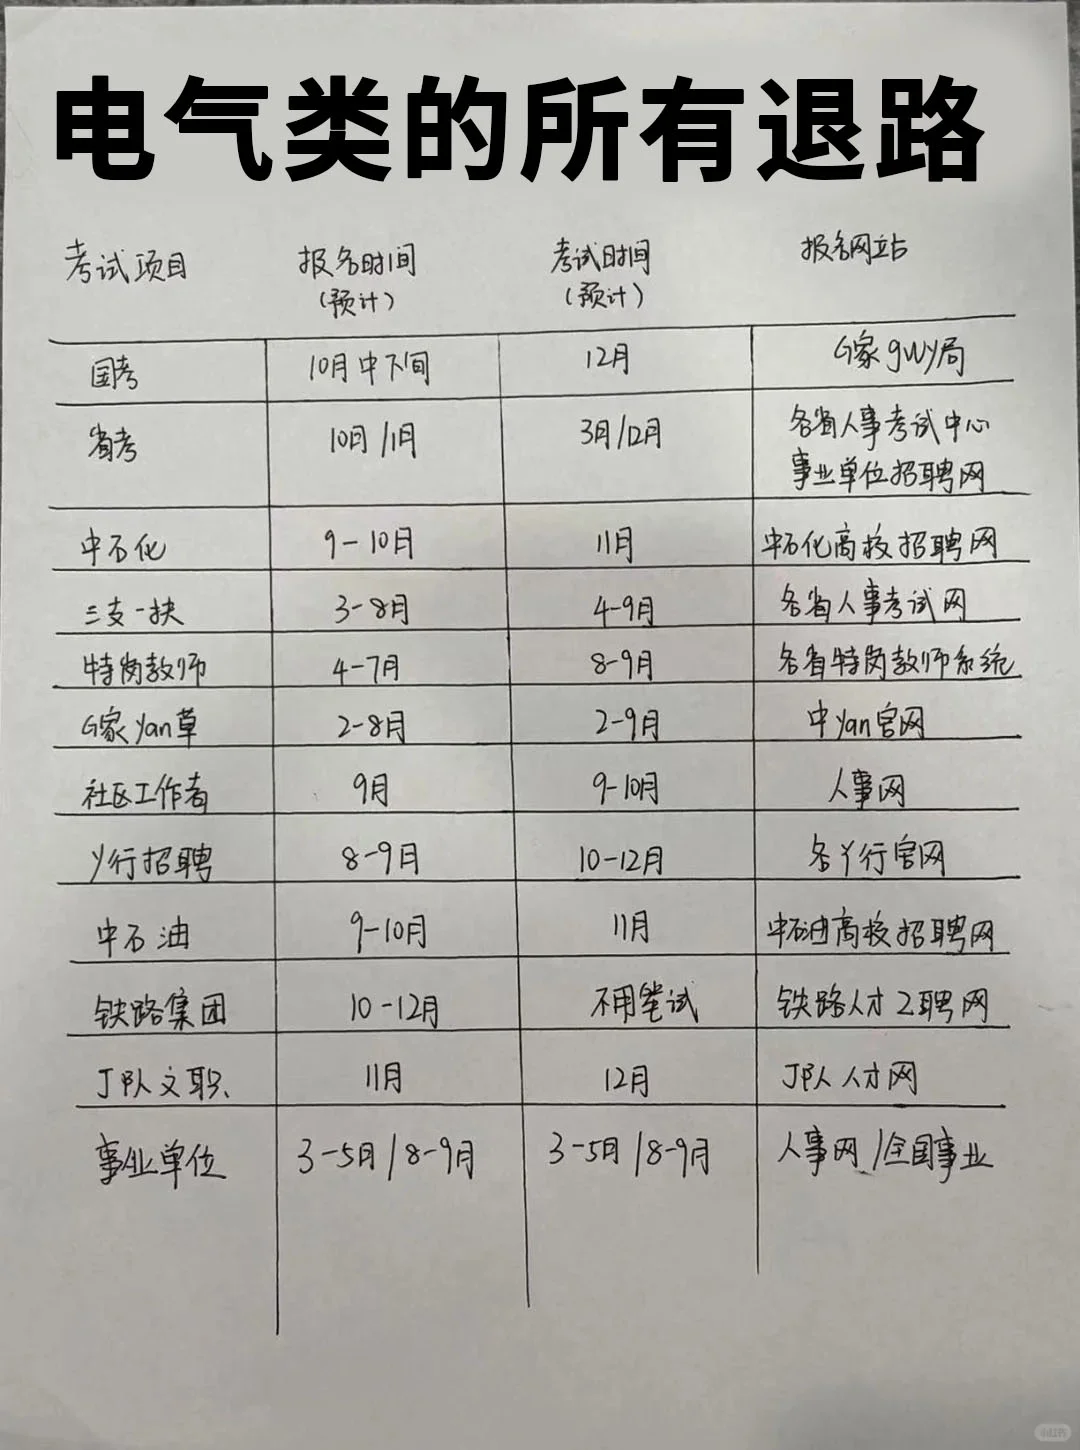 电气类的所有退路
考试项目 报名时间 考试时间 报名网站
(预计) (预计)
国考 10月中下旬 12月 G家gwy局
省考 10月/1月 3月/12月 各省人事考试中心
事业单位招聘网
中石化 9-10月 11月 中石化高校招聘网
三支一扶 3-8月 4-9月 各省人事考试网
特岗教师 4-7月 8-9月 各省特岗教师系统
G家yan草 2-8月 2-9月 中yan官网
社区工作者 9月 9-10月 人事网
y行招聘 8-9月 10-12月 各y行官网
中石油 9-10月 11月 中石油高校招聘网
铁路集团 10-12月 不用笔试 铁路人才Z聘网
J队文职 11月 12月 J队人才网
事业单位 3-5月/8-9月 3-5月/8-9月 人事网/全国事业
小红书